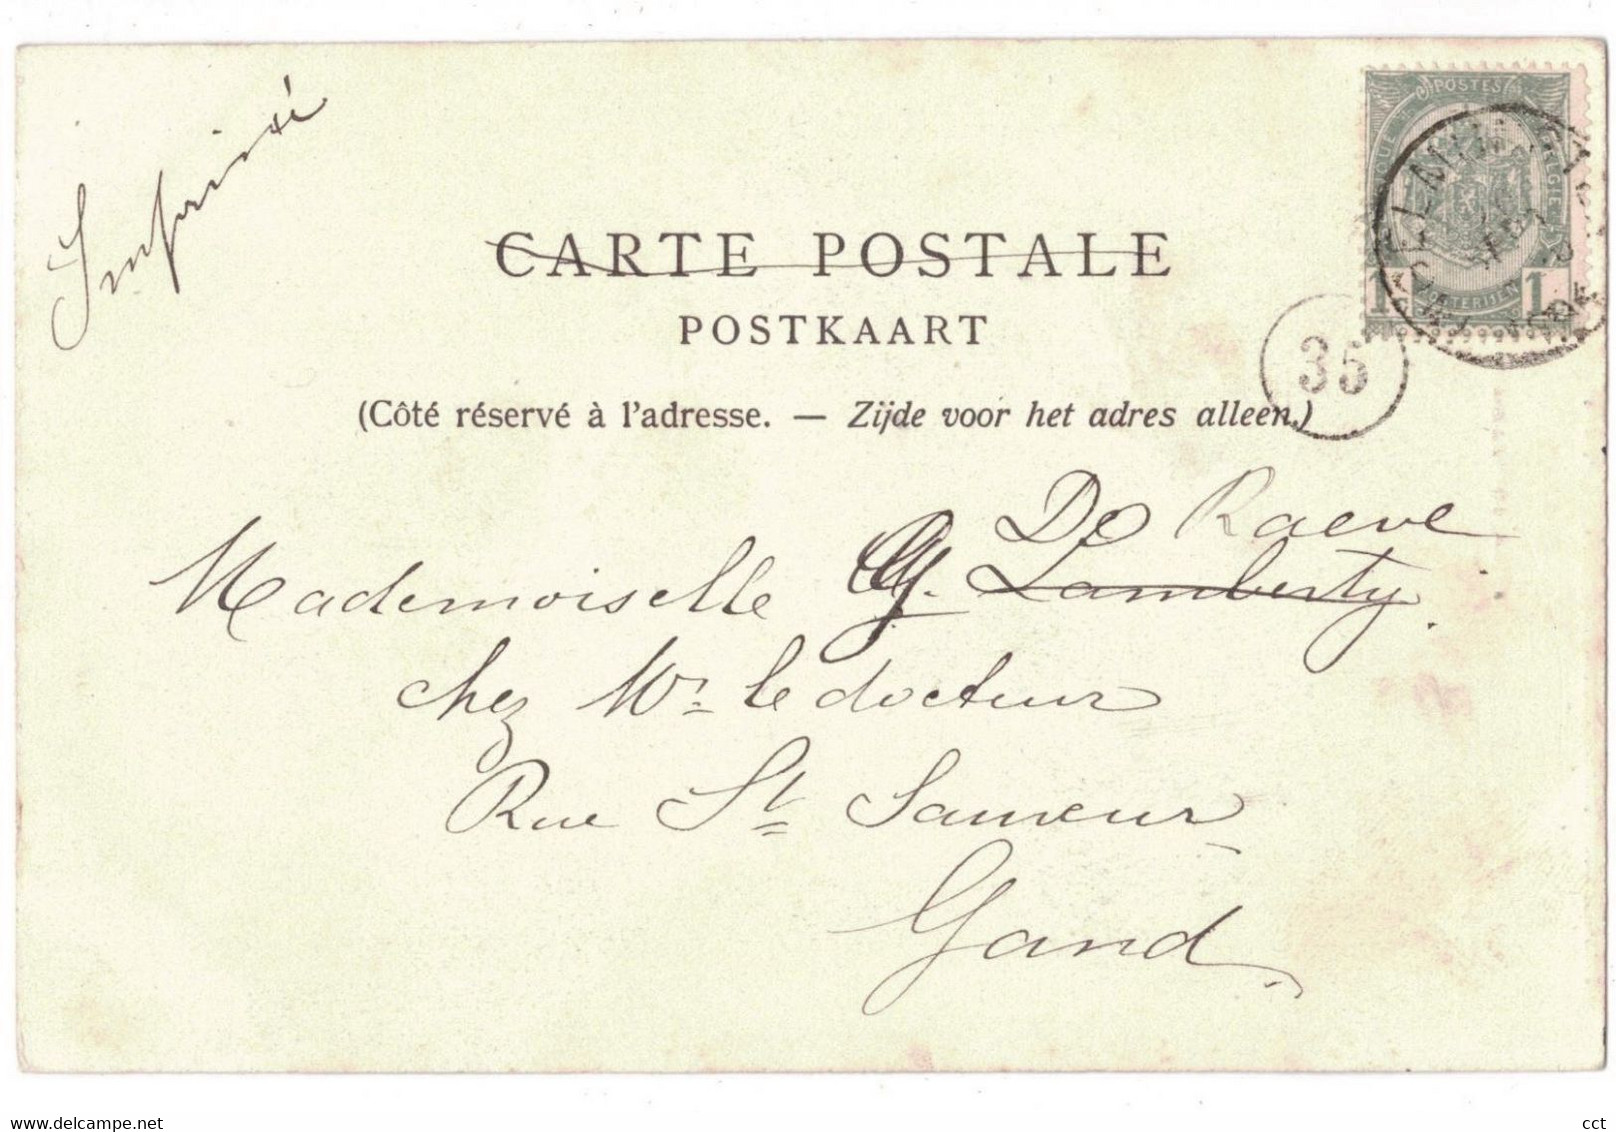 Imprimé
CARTE POSTALE
POSTKAART
(Côté réservé à l'adresse. — Zijde voor het adres alleen.)
POSTES
1 1
35
De Raeve
Mademoiselle G. Lamberty.
chez Mr. le docteur
Rue St Sauveur
Gand.
www.delcampe.net
cct